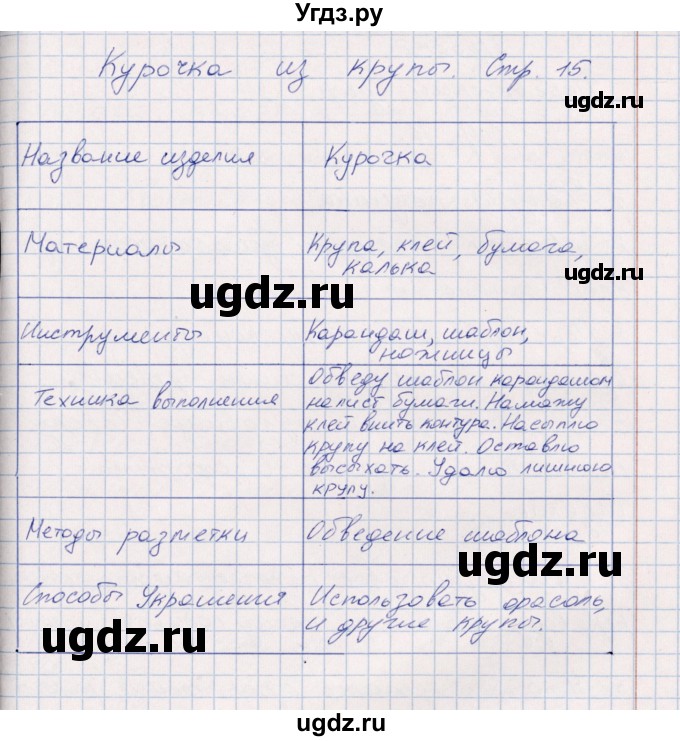 Угдз.ру
Курочка из крупы. Стр. 15.
ugdz.ru
Название изделия
Курочка
Материалы
Крупа, клей, бумага,
калька
ugdz.ru
ugdz.ru
Инструменты
Карандаш, шаблон,
ножницы
Техника выполнения
Обведу шаблон карандашом
на лист бумаги. Намажу
клей внить контура. Насыплю
крупу на клей. Оставлю
высыхать. Удалю лишнюю
крупу.
Методы разметки
Обведение шаблона
ugdz.ru
Способы Украшения
Использовать фасоль,
и другие крупы.
ugdz.ru
ugdz.ru